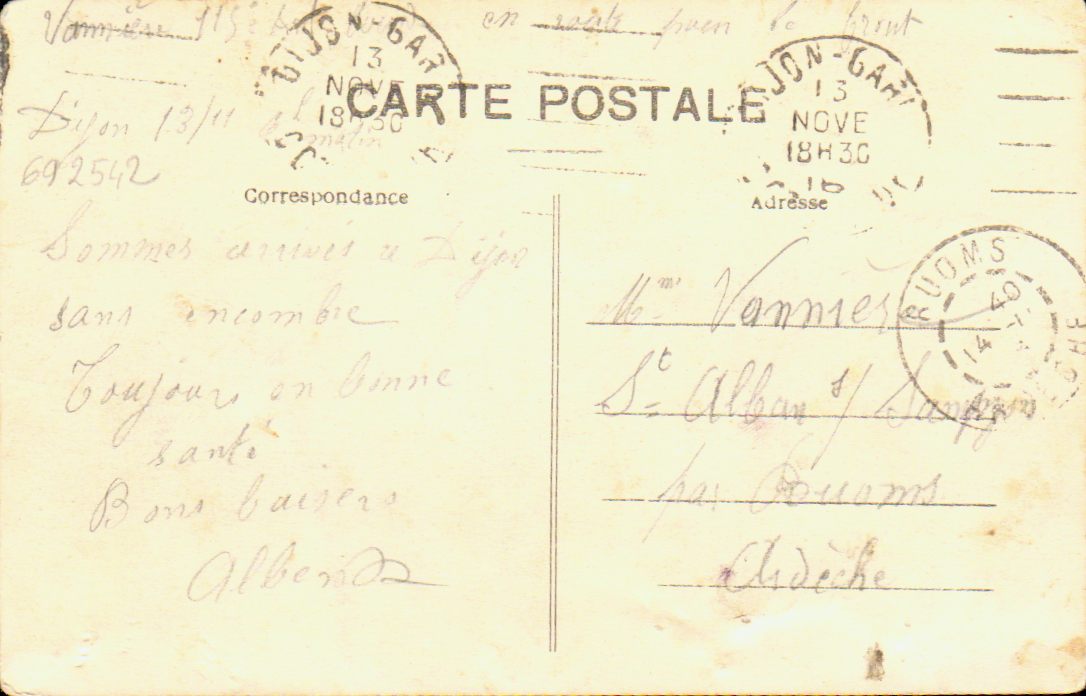 Vannière 115e en route pour le front
DIJON-GARE
13
NOVE
18H30
CARTE POSTALE
DIJON-GARE
13
NOVE
18H30
16
Dijon 13/11
matin
692542
Correspondance
Adresse
Sommes arrivés à Dijon
sans encombre
Toujours en bonne
santé
Bons baisers
Albert
RUOMS
14
Mme Vannière
St Alban s/ Sampzon
par Ruoms
Ardèche